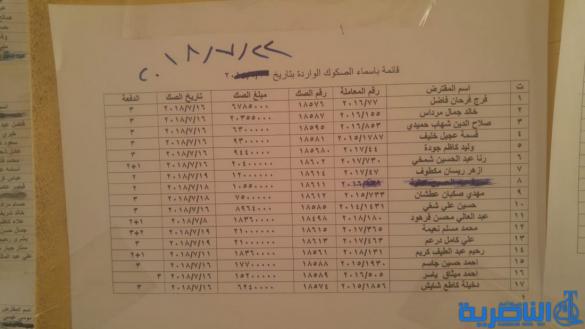 ٢٠١٨/٧/٢٢
قائمة باسماء الصكوك الواردة بتاريخ
ت اسم المقترض رقم المعاملة رقم الصك مبلغ الصك تاريخ الصك الدفعة
١ فرج فرحان فاضل ٢٠١٦/٧٧ ١٨٥٧٦ ٦٧٨٥٠٠٠ ٢٠١٨/٧/١٦ ٣
٢ خالد جمال مرداس ٢٠١٦/١٥٥ ١٨٥٨٧ ٢٠٣٥٥٠٠٠ ٢٠١٨/٧/١٦ ٣
٣ صلاح الدين شهاب حميدي ٢٠١٦/٨٥٣ ١٨٥٩٥ ٦٣٠٠٠٠٠ ٢٠١٨/٧/١٦ ٣
٤ قسمة عجيل خليف ٢٠١٥/١٧٨٧ ١٨٥٨١ ٩٣٠٠٠٠٠ ٢٠١٨/٧/١٦ ٣
٥ وليد كاظم جودة ٢٠١٧/٤٤ ١٨٥٦٨٠ ٩٤٤٠٠٠٠ ٢٠١٨/٧/١٦ ٣
٦ رنا عبد الحسين شمخي ٢٠١٧/٧٣٠ ١٨٦٠٢ ٢٠٤٠٠٠٠٠ ٢٠١٨/٧/١٦ ٢
٧ ازهر ريسان مكطوف ٢٠١٧/٤٧ ١٨٦١٤ ١٢٠٠٠٠٠٠ ٢٠١٨/٧/١٩ ٢
٨ ١٨٦١١ ١٠٥٥٠٠٠٠ ٢٠١٨/٧/١٨ ٢
٩ مهدي صكبان عطشان ٢٠١٥/٧٣٣ ٧٥٠٠٠٠٠ ٢٠١٨/٧/١٨ ٣
١٠ حسين علي شفي ٢٠١٤/١٤٣١ ١٨٥٨٥ ٨٩٦٤٠٠٠ ٢٠١٨/٧/١٦ ٣
١١ عبد العالي محسن فرهود ٢٠١٨/١٨٠ ١٨٤٩٨ ١٨٣٦٠٠٠٠ ٢٠١٨/٧/٨ ١+٢
١٢ محمد مسلم نعيمة ٢٠١٧/٣٦٥ ١٨٦١٥ ٢١٠٠٠٠٠٠ ٢٠١٨/٧/١٩ ٢+٣
١٣ علي كامل درعم ٢٠١٧/٤٦٣ ١٨٦١٣ ٢١٠٠٠٠٠٠ ٢٠١٨/٧/١٩ ٢
١٤ رحيم عبد الطيف كريم ٢٠١٨/١٣١ ١٨٥٦١ ١٨٣٦٠٠٠٠ ٢٠١٨/٧/١١ ١+٢
١٥ احمد حسين جاسم ٢٠١٥/١٩٣٠ ١٨٥٨٨ ١٧٧٠٠٠٠٠ ٢٠١٨/٧/١٦ ٣
١٦ احمد ميثاق ياسر ٢٠١٦/٥٠٥ ١٨٥٨٩ ١٥٢٠٠٠٠٠ ٢٠١٨/٧/١٦ ٣
١٧ دخيلة كاطع شايش ٢٠١٥/١٨٥٦ ١٨٥٧٤ ٦٢٤٠٠٠٠ ٢٠١٨/٧/١٦ ٣
الناصرية